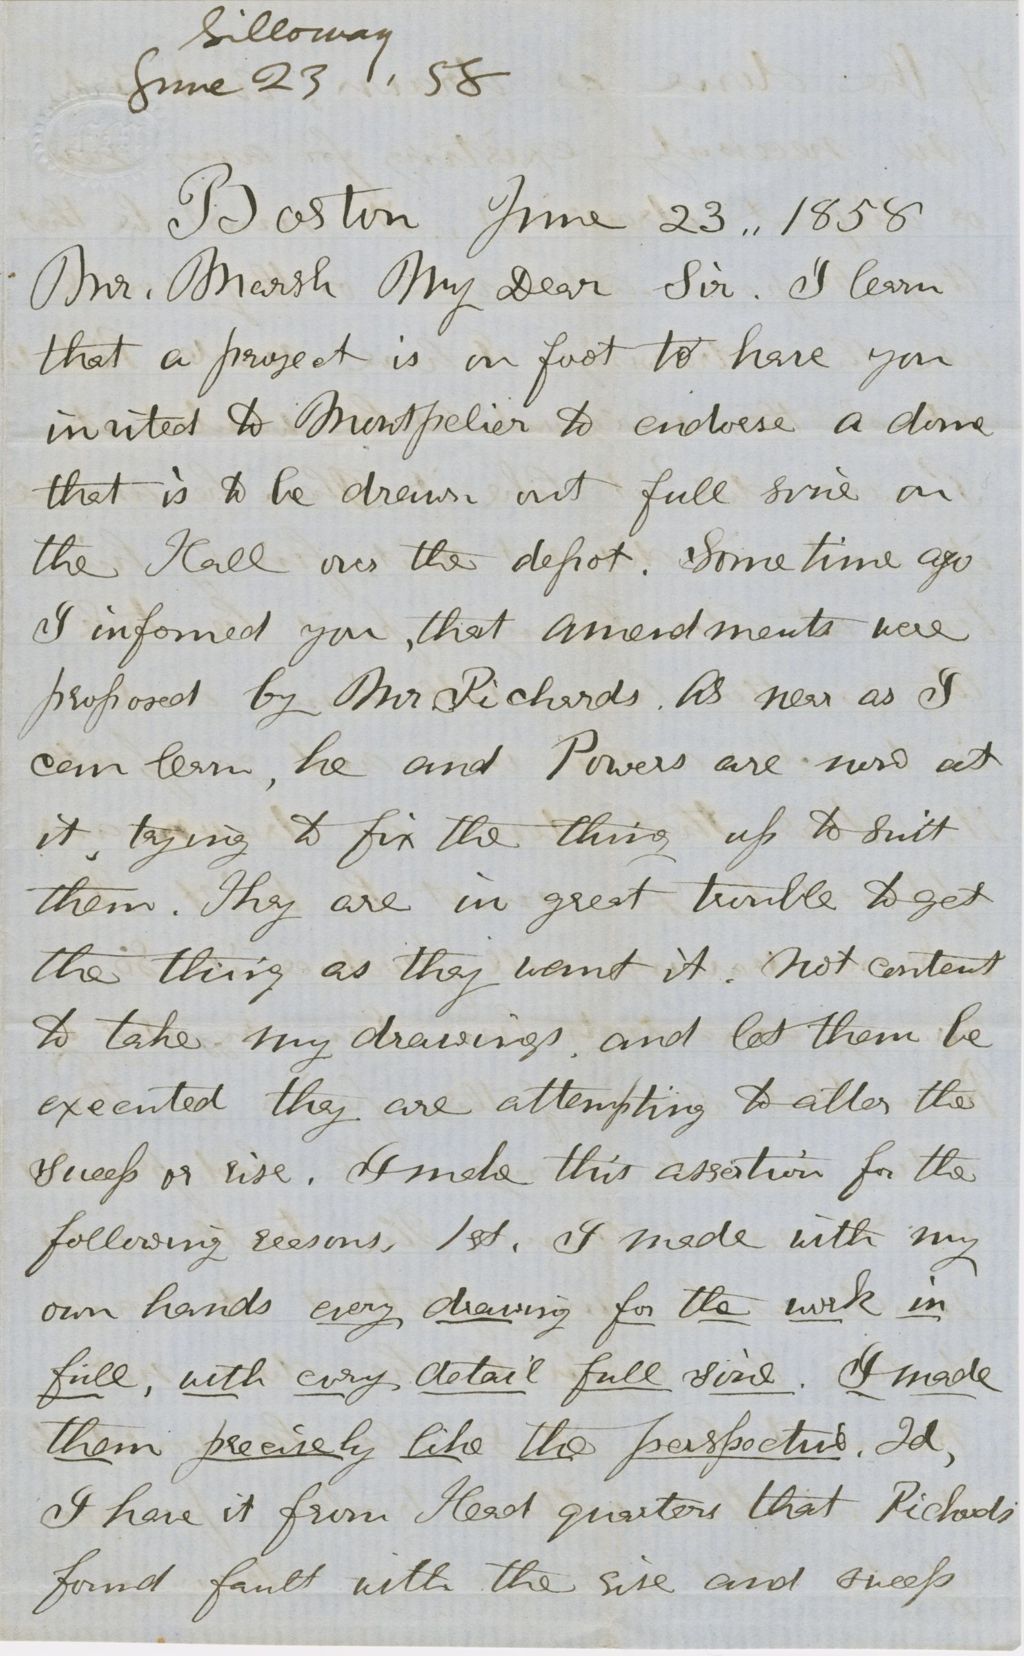 Silloway
June 23, 58
Boston June 23,, 1858
Mr. Marsh My Dear Sir. I learn
that a project is on foot to have you
invited to Montpelier to endorse a dome
that is to be drawn out full sise on
the Hall over the depot. Some time ago
I informed you, that amendments were
proposed by Mr Richards. As near as I
can learn, he and Powers are now at
it, trying to fix the thing up to suit
them. They are in great trouble to get
the thing as they want it. Not content
to take my drawings, and let them be
executed they are attempting to alter the
sweep or rise. I make this assertion for the
following reasons, 1st, I made with my
own hands every drawing for the work in
full, with every detail full sise. I made
them precisely like the perspective. 2d,
I have it from Head quarters that Richards
found fault with the rise and sweep